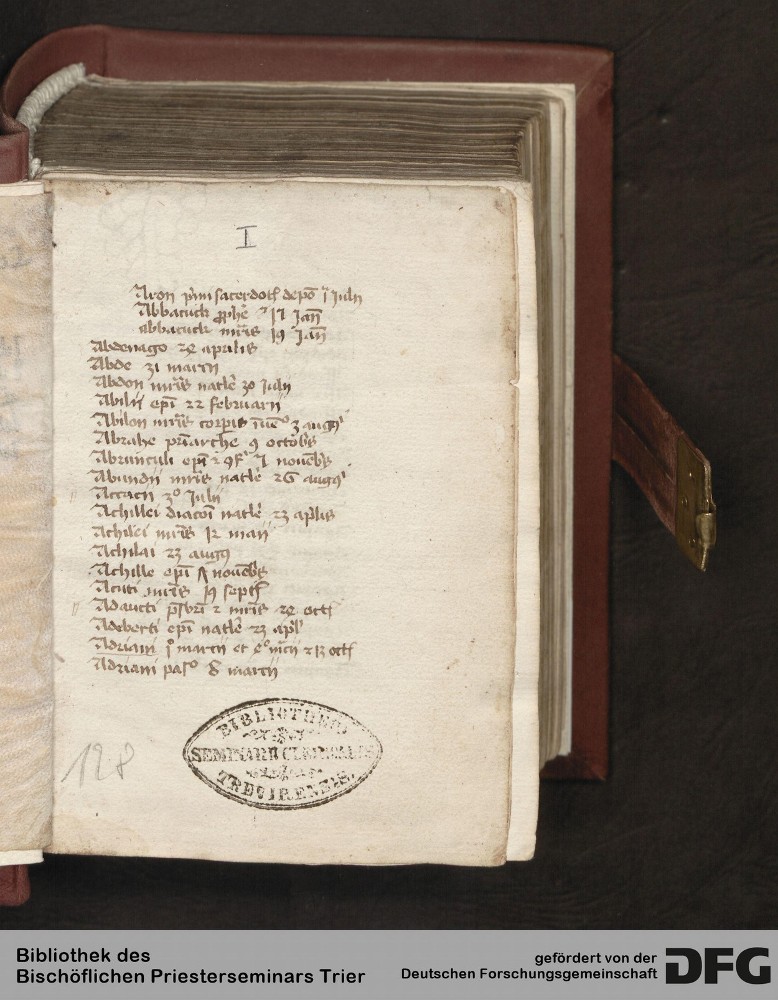 I
Aron p̄mi sacerdoṭ depō 1 Julij
Abbacuck ꝓphē 17 Jan̄
abbacuck mr̄is 19 Jan̄
Abdenago 24 aprilis
Abde 31 martij
Abdon mr̄is natłe 30 Julij
Abilij ep̄i 22 februarij
Abilon mr̄is corp̄is īuēº 3 augꝰ
Abrahe pr̄iarche 9 octob̄s
Abrunculi ep̄i novēb̄s
Abundij mr̄is natłe 26 augꝰ
Accacij Julij
Achillei diacoī natłe 23 ap̄lis
Achilei mr̄is 12 maij
Achilai 23 augꝰ
Achille ep̄i novēb̄s
Acuti mr̄is 19 sept̄
Adaucti p̄sbrī ⁊ mr̄is 24 oct̄
Adeberti ep̄i natłe 23 ap̄l
Adriani martij et ⁊ 13 oct̄
Adriani pasº 8 martij
BIBLIOTHECA
SEMINARII CLERICALIS
TREVIRENSIS.
128
Bibliothek des
Bischöflichen Priesterseminars Trier
gefördert von der
Deutschen Forschungsgemeinschaft
DFG